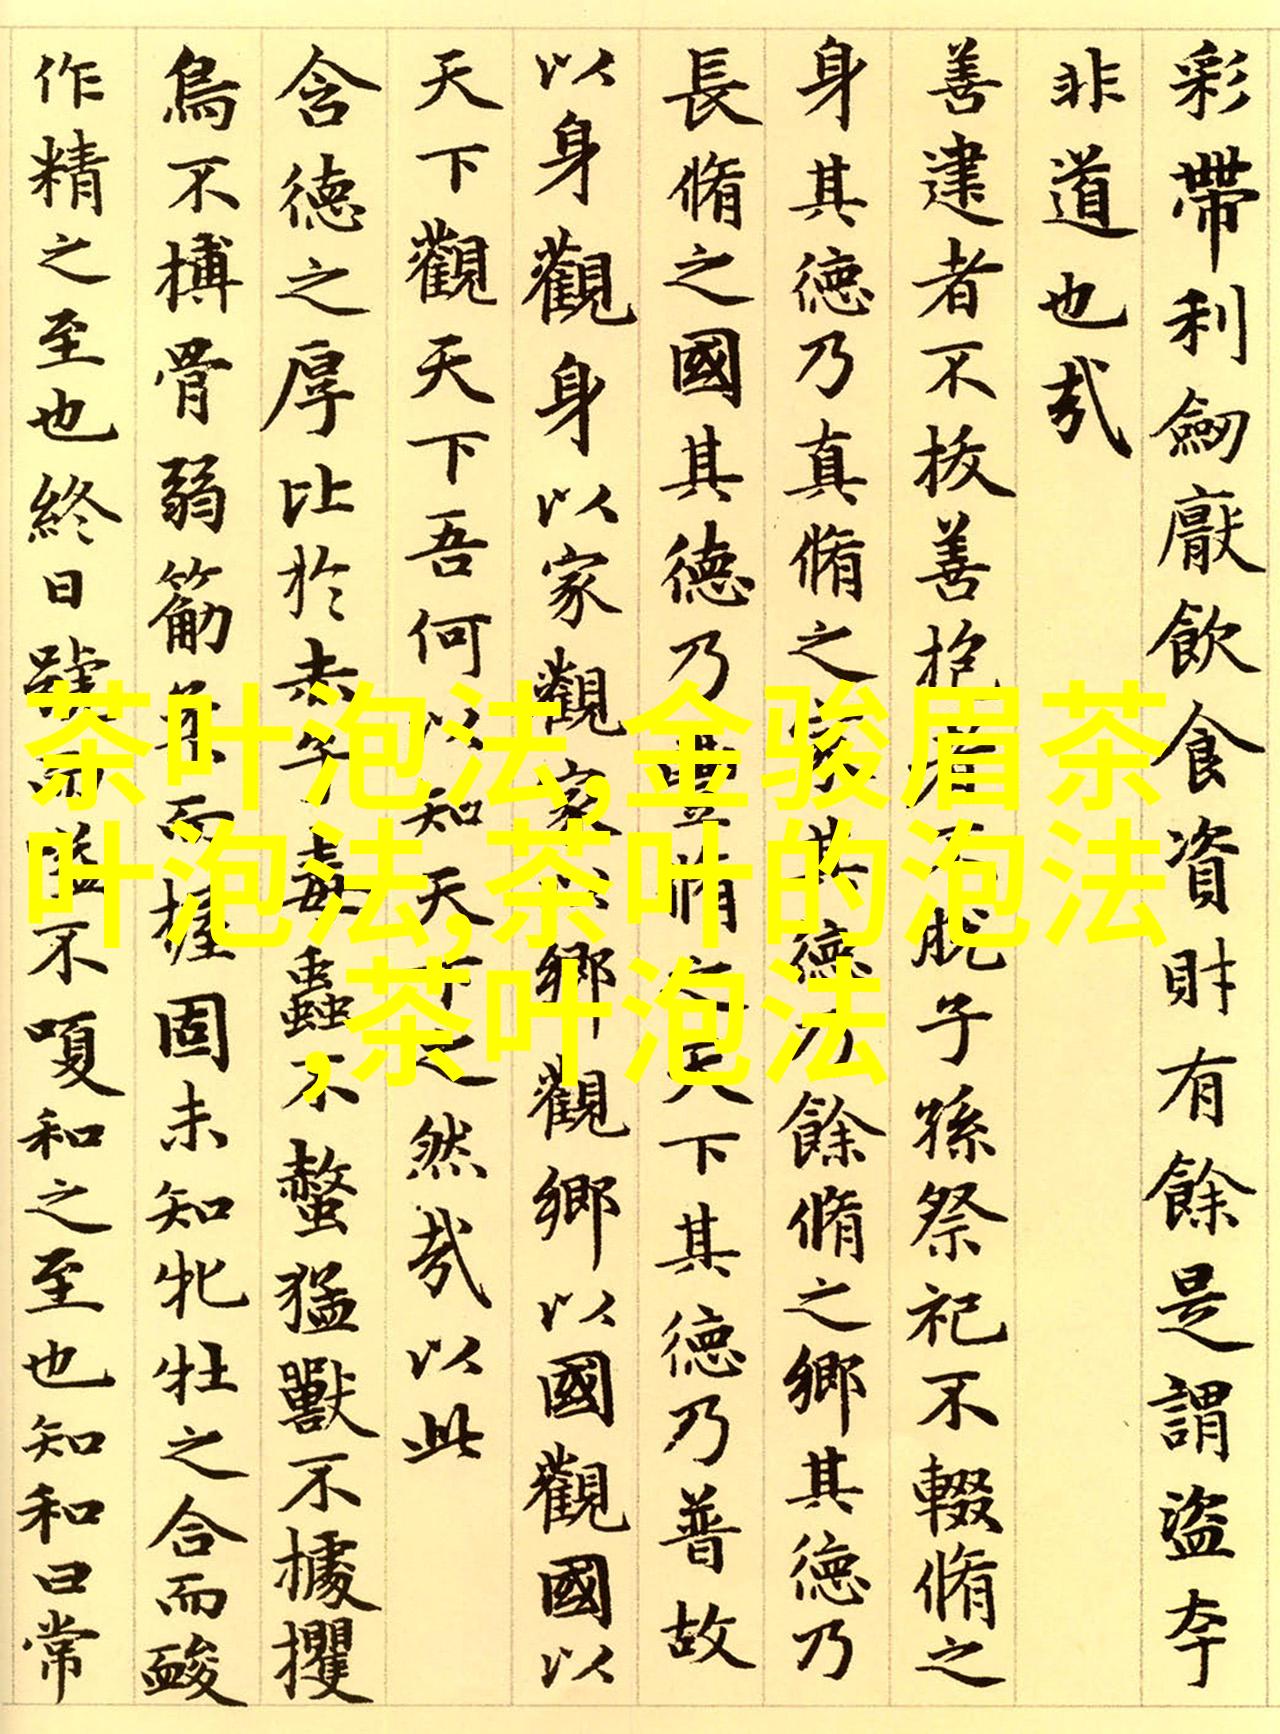 彩帶利劒厭飲食資財有餘是謂盜夸
非道也㢤
善建者不拔善抱者不脫子孫祭祀不輟脩之
身其德乃真脩之家其德乃餘脩之鄉其德乃
長脩之國其德乃豐脩之天下其德乃普故
以身觀身以家觀家以鄉觀鄉以國觀國以
天下觀天下吾何以知天下之然㢤以此
含德之厚比於赤子毒蟲不螫猛獸不據攫
鳥不搏骨弱筋柔而握固未知牝牡之合而酸
作精之至也終日號而嗌不嗄和之至也知和曰常
茶叶泡法,金骏眉茶
叶泡法,茶叶的泡法
,茶叶泡法